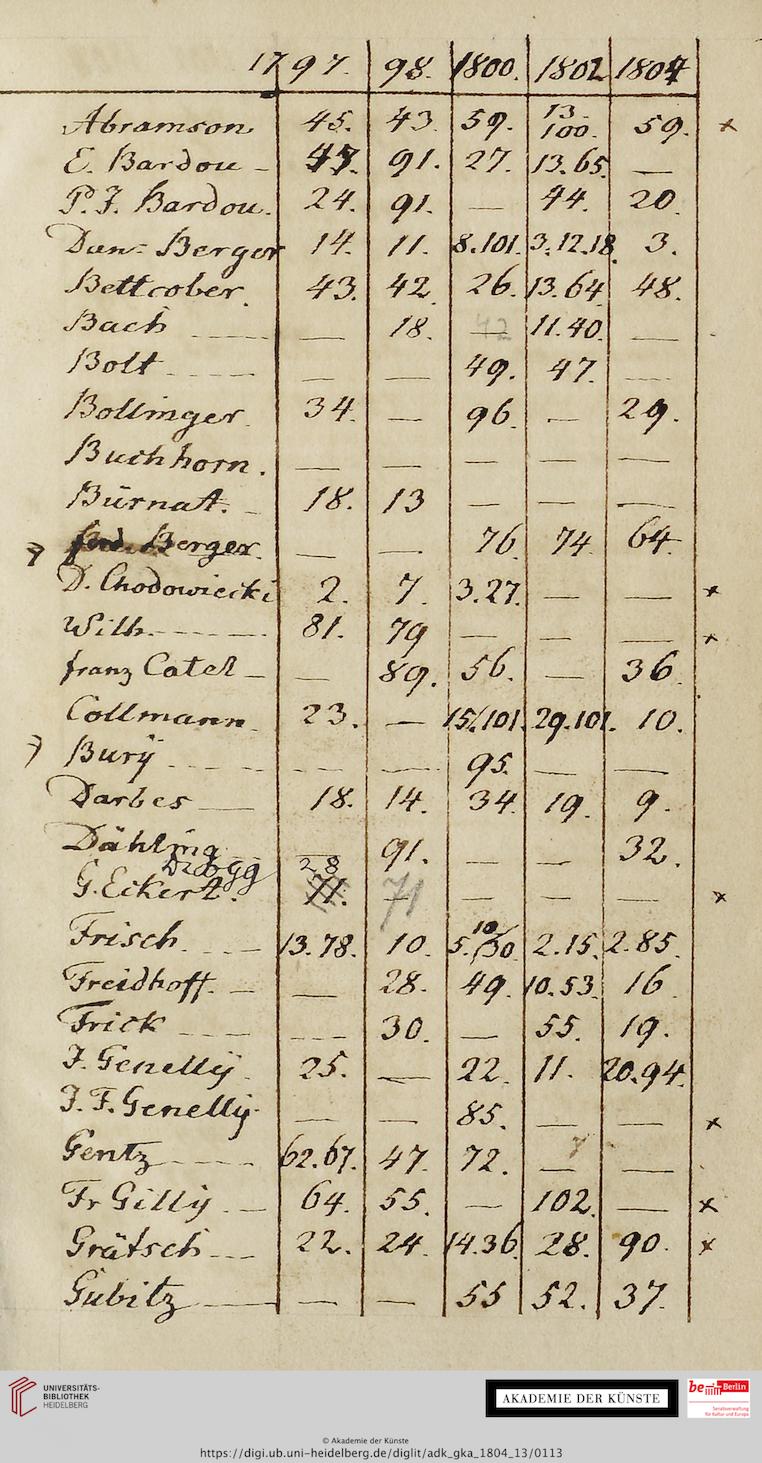 1797. 98. 1800. 1802 1804
Abramson 45. 43. 59. 13. 100. 59. ×
E. Bardou – 47. 91. 27. 13.65. —
P. J. Bardou. 24. 91. — 44. 20.
Dan: Berger 14. 11. 8.101. 3.12.18. 3.
Bettcober. 43. 42. 26. 13.64. 48.
Bach — 18. 42 11.40. —
Bolt — — 49. 47. —
Bollinger. 34. — 96. — 29.
Buchhorn. — — — — —
Bürnat. – 18. 13 — — —
Berger. — — 76. 74. 64.
D. Chodowiecki 2. 7. 3.27. — — ×
Wilh. 81. 79 — — — ×
franz Catel – — 89. 56. — 36.
Collmann 23. — 15/101. 29.101. 10.
Burÿ — — 95. — —
Darbes — 18. 14. 34. 19. 9.
Dähling — 91. — — 32.
28
G. Eckert. 71. 71 — — — ×
Frisch. 13.78. 10. 5. 10/30. 2.15. 2.85.
Freidhoff. – — 28. 49. 10.53. 16.
Frick — 30. — 55. 19.
J. Genellÿ 25. — 22. 11. 20.94.
J. F. Genelly. — — 85. — — ×
Gentz 62.67. 47. 72. — —
Fr Gilly. 64. 55. — 102. — ×
Grätsch 22. 24. 14.36. 28. 90. ×
Gubitz — — 55 52. 37.
UNIVERSITÄTS-
BIBLIOTHEK
HEIDELBERG
AKADEMIE DER KÜNSTE
be Berlin
Senatsverwaltung
für Kultur und Europa
© Akademie der Künste
https://digi.ub.uni-heidelberg.de/diglit/adk_gka_1804_13/0113